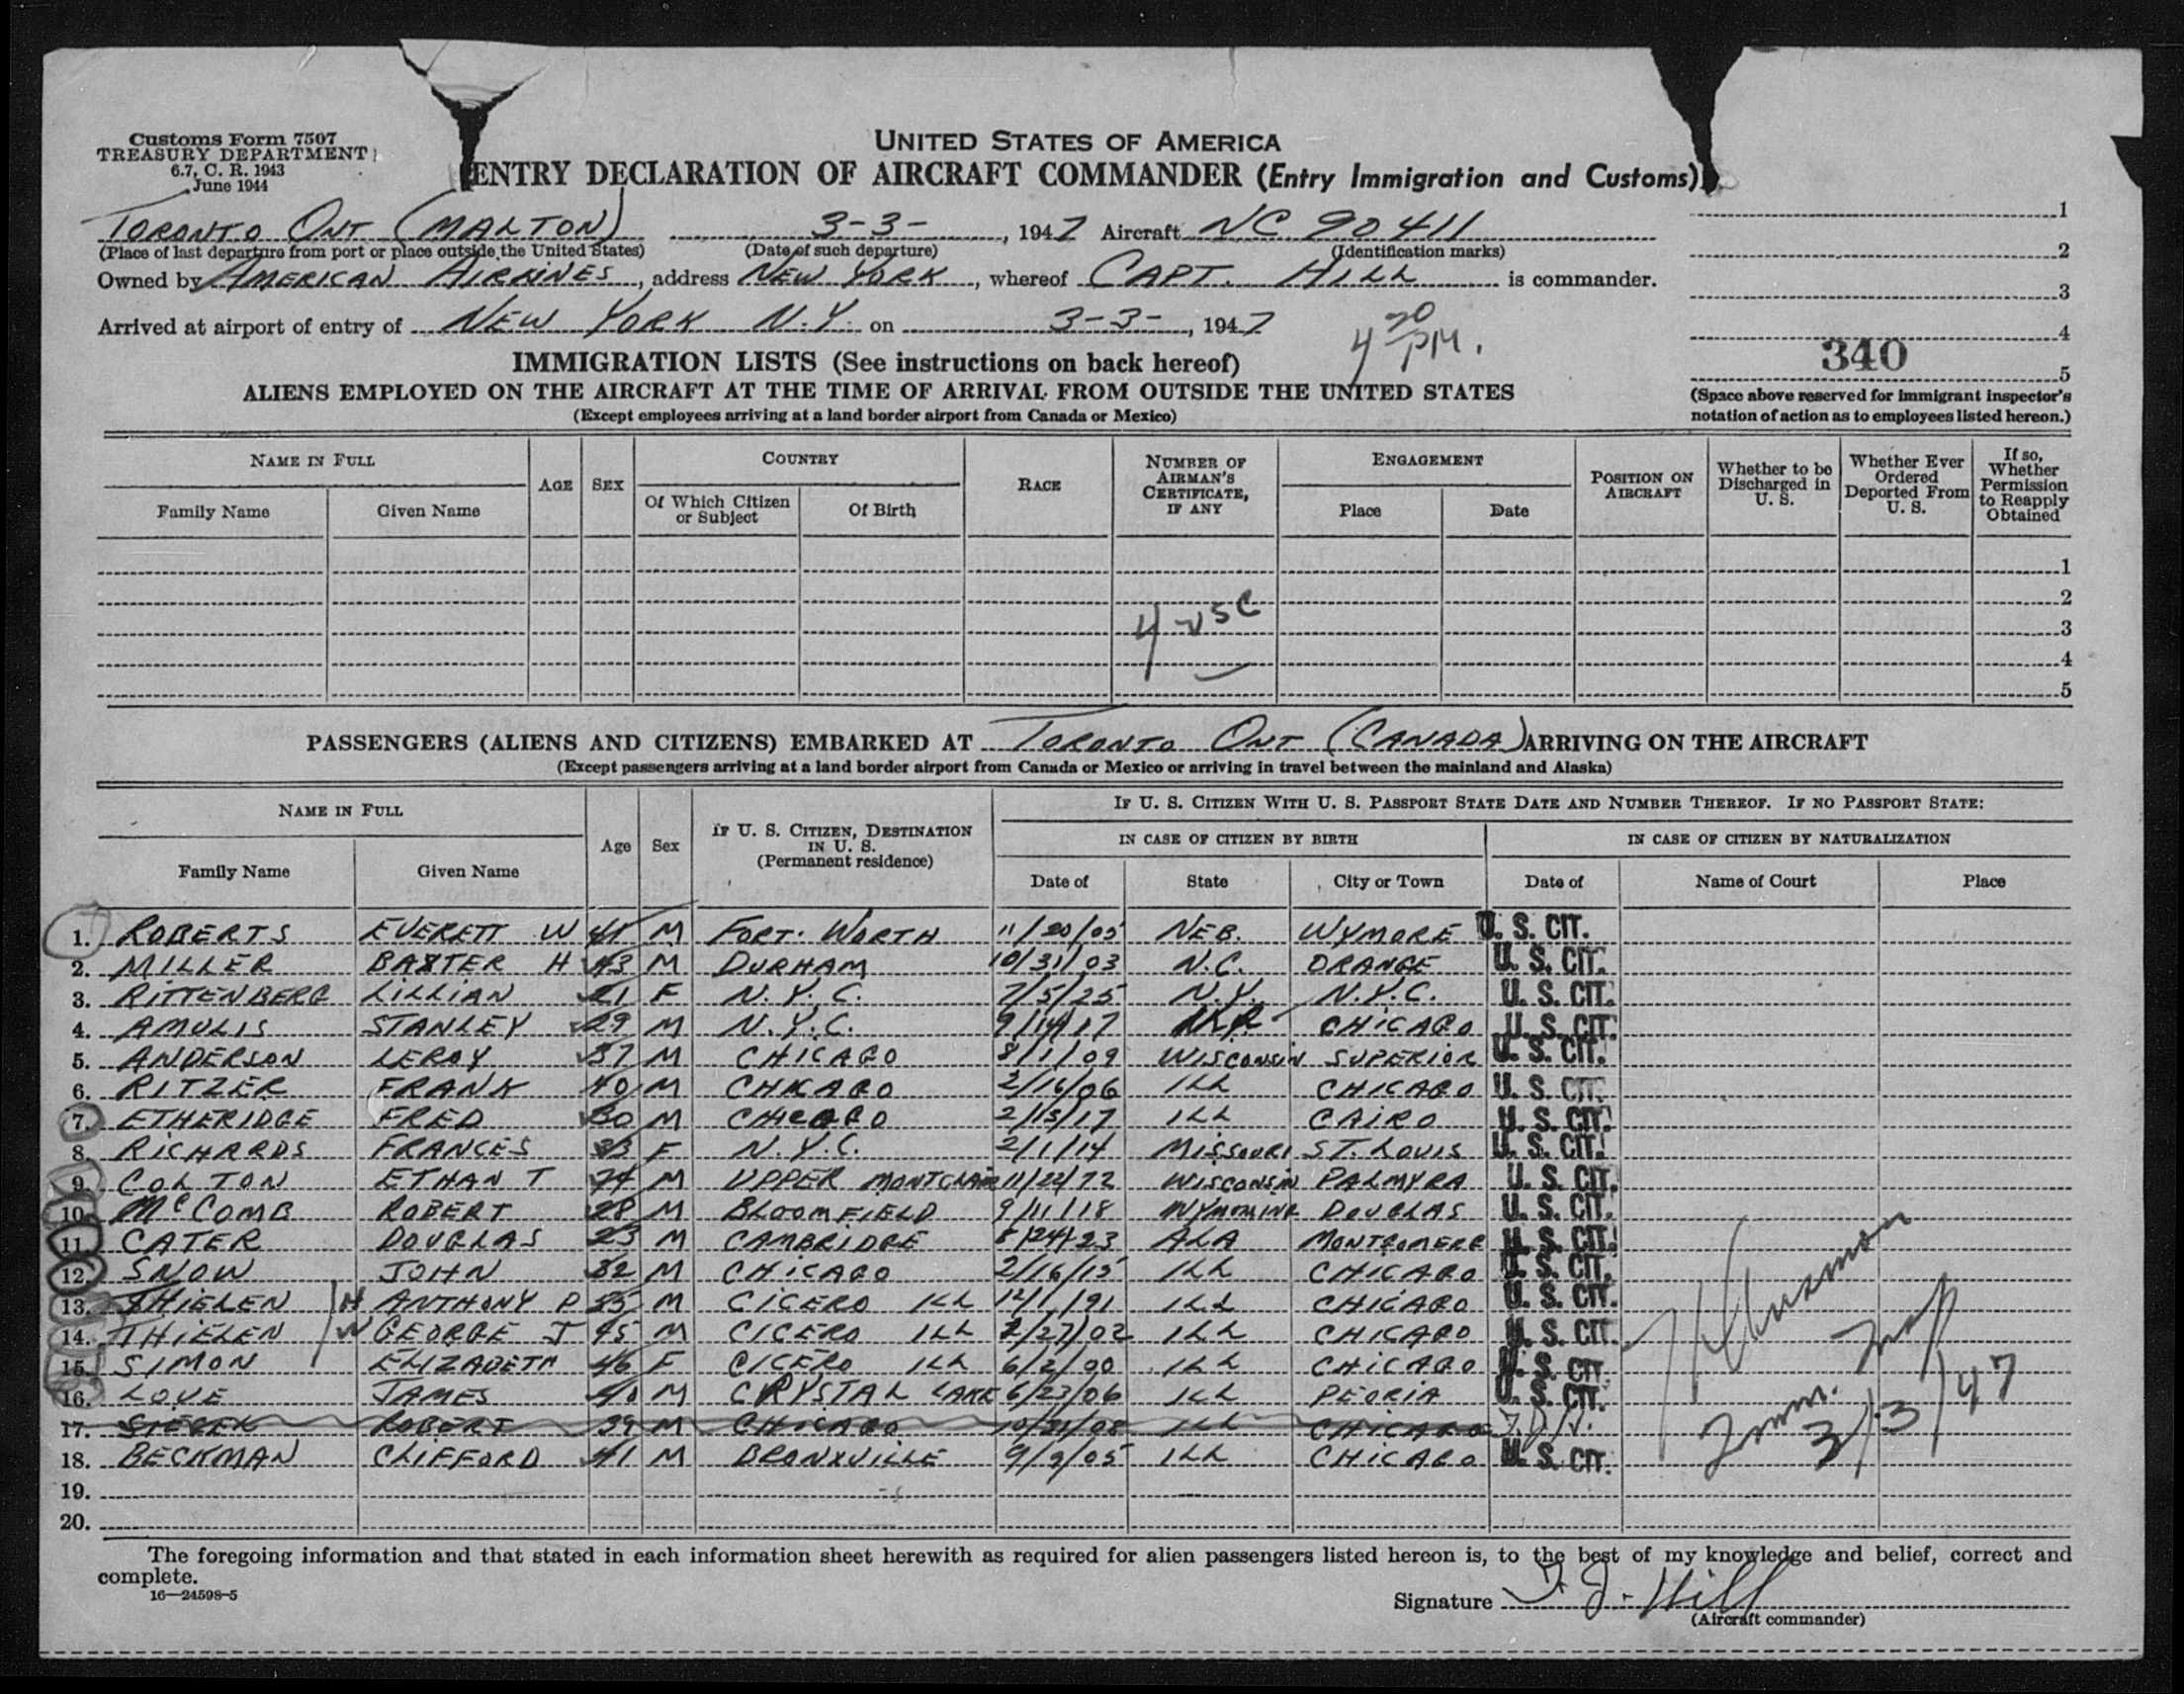 Customs Form 7507
TREASURY DEPARTMENT
6.7, C. R. 1943
June 1944
UNITED STATES OF AMERICA
ENTRY DECLARATION OF AIRCRAFT COMMANDER (Entry Immigration and Customs)
TORONTO ONT (MALTON) 3-3-, 1947 Aircraft NC 90411
(Place of last departure from port or place outside the United States) (Date of such departure) (Identification marks)
Owned by AMERICAN AIRLINES, address NEW YORK, whereof CAPT. HILL is commander.
Arrived at airport of entry of NEW YORK N.Y. on 3-3-, 1947
4 20 PM.
1
2
3
4
340
5
(Space above reserved for immigrant inspector's
notation of action as to employees listed hereon.)
IMMIGRATION LISTS (See instructions on back hereof)
ALIENS EMPLOYED ON THE AIRCRAFT AT THE TIME OF ARRIVAL FROM OUTSIDE THE UNITED STATES
(Except employees arriving at a land border airport from Canada or Mexico)
NAME IN FULL
Family Name Given Name
AGE SEX
COUNTRY
Of Which Citizen or Subject Of Birth
RACE
NUMBER OF AIRMAN'S CERTIFICATE, IF ANY
ENGAGEMENT
Place Date
POSITION ON AIRCRAFT
Whether to be Discharged in U. S.
Whether Ever Ordered Deported From U. S.
If so, Whether Permission to Reapply Obtained
1
2
4 USC
3
4
5
PASSENGERS (ALIENS AND CITIZENS) EMBARKED AT TORONTO ONT (CANADA) ARRIVING ON THE AIRCRAFT
(Except passengers arriving at a land border airport from Canada or Mexico or arriving in travel between the mainland and Alaska)
NAME IN FULL
Family Name Given Name
Age Sex
IF U. S. CITIZEN, DESTINATION IN U. S. (Permanent residence)
IF U. S. CITIZEN WITH U. S. PASSPORT STATE DATE AND NUMBER THEREOF. IF NO PASSPORT STATE:
IN CASE OF CITIZEN BY BIRTH IN CASE OF CITIZEN BY NATURALIZATION
Date of State City or Town Date of Name of Court Place
1. ROBERTS EVERETT W 41 M FORT WORTH 11/20/05 NEB. WYMORE U. S. CIT.
2. MILLER BAXTER H 43 M DURHAM 10/31/03 N.C. ORANGE U. S. CIT.
3. RITTENBERG LILLIAN 21 F N.Y.C. 7/5/25 N.Y. N.Y.C. U. S. CIT.
4. AMULIS STANLEY 29 M N.Y.C. 9/14/17 CHICAGO U. S. CIT.
5. ANDERSON LEROY 37 M CHICAGO 8/1/09 WISCONSIN SUPERIOR U. S. CIT.
6. RITZER FRANK 40 M CHICAGO 2/16/06 ILL CHICAGO U. S. CIT.
7. ETHERIDGE FRED 30 M CHICAGO 2/15/17 ILL CAIRO U. S. CIT.
8. RICHARDS FRANCES 33 F N.Y.C. 2/1/14 MISSOURI ST. LOUIS U. S. CIT.
9. COLTON ETHAN T 74 M UPPER MONTCLAIR 11/22/72 WISCONSIN PALMYRA U. S. CIT.
10. McCOMB ROBERT 28 M BLOOMFIELD 9/11/18 WYNOMING DOUGLAS U. S. CIT.
11. CATER DOUGLAS 23 M CAMBRIDGE 8/24/23 ALA MONTGOMERE U. S. CIT.
12. SNOW JOHN 32 M CHICAGO 2/16/15 ILL CHICAGO U. S. CIT.
13. THIELEN H ANTHONY P 55 M CICERO ILL 12/1/91 ILL CHICAGO U. S. CIT.
14. THIELEN W GEORGE J 45 M CICERO ILL 2/27/02 ILL CHICAGO U. S. CIT.
15. SIMON ELIZABETH 46 F CICERO ILL 6/2/00 ILL CHICAGO U. S. CIT.
16. LOVE JAMES 40 M CRYSTAL LAKE 6/23/06 ILL PEORIA U. S. CIT.
17. ROBERT 39 M CHICAGO ILL CHICAGO
18. BECKMAN CLIFFORD 41 M BRONXVILLE 9/9/05 ILL CHICAGO U. S. CIT.
19.
20.
Imm. Insp
3/3/47
The foregoing information and that stated in each information sheet herewith as required for alien passengers listed hereon is, to the best of my knowledge and belief, correct and
complete.
16—24598-5
Signature J. Hill
(Aircraft commander)